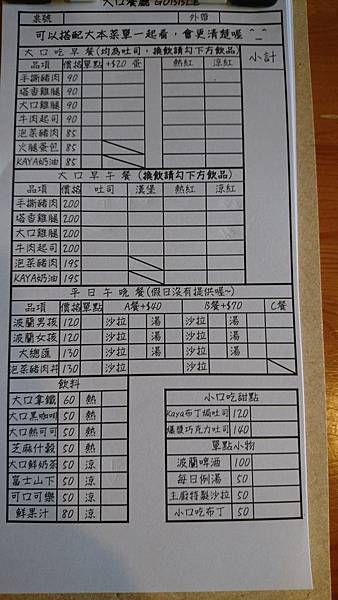 大口餐廳 GUBISLE
桌號 外帶
可以搭配大本菜單一起看，會更清楚喔 ^_^
大口吃早餐(均為吐司，換飲請勾下方飲品) 小計
品項 價格 單點 +$20 蛋 熱紅 涼紅
手撕豬肉 90
塔香雞腿 90
大口雞腿 90
牛肉起司 90
泡菜豬肉 85
火腿蛋包 85
KAYA奶油 85
大口早午餐(換飲請勾下方飲品)
品項 價格 吐司 漢堡 熱紅 涼紅
手撕豬肉 200
塔香雞腿 200
大口雞腿 200
牛肉起司 200
泡菜豬肉 195
KAYA奶油 195
平日午晚餐(假日沒有提供喔~)
品項 價格 單點 A餐+$40 B餐+$70 C餐
波蘭男孩 120 沙拉 湯 沙拉 湯
波蘭女孩 120 沙拉 湯 沙拉 湯
大總匯 130 沙拉 湯 沙拉 湯
泡菜豬肉丼 130 沙拉 沙拉
飲料
大口拿鐵 60 熱
大口黑咖啡 50 熱
大口熱可可 50 熱
芝麻什穀 50 熱
大口鮮奶茶 50 涼
富士山下 50 涼
可口可樂 50 涼
鮮果汁 80 涼
小口吃甜點
Kaya布丁焗吐司 120
爆漿巧克力吐司 140
單點小物
波蘭啤酒 100
每日例湯 50
主廚特製沙拉 50
小口吃布丁 50